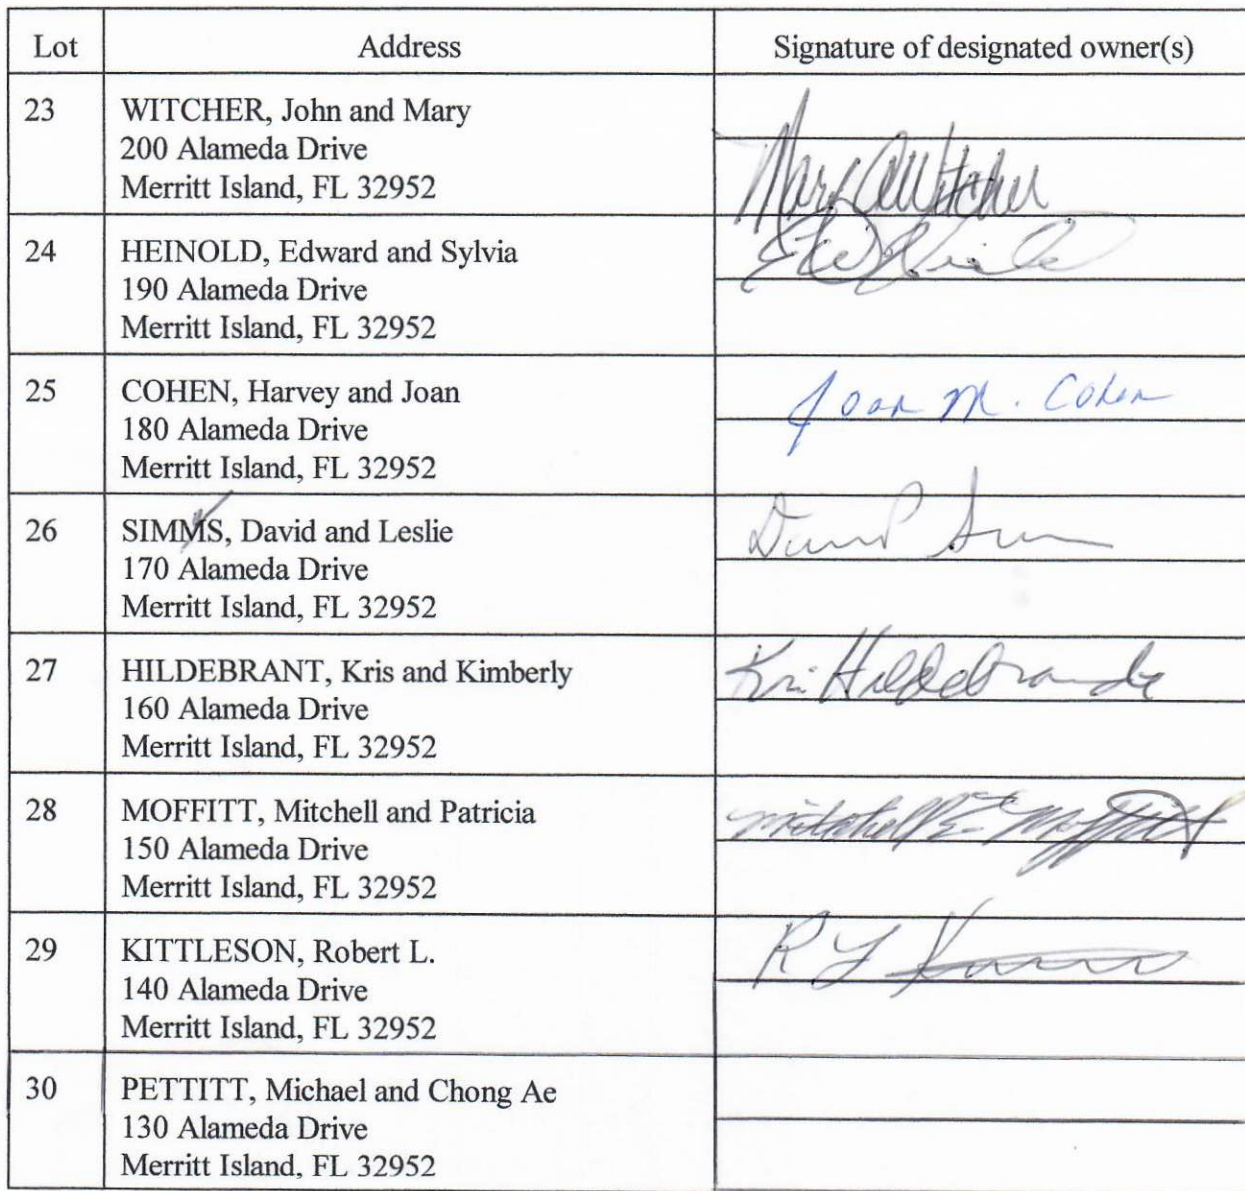 Lot Address Signature of designated owner(s)
23 WITCHER, John and Mary
200 Alameda Drive
Merritt Island, FL 32952
Mary A Witcher
24 HEINOLD, Edward and Sylvia
190 Alameda Drive
Merritt Island, FL 32952
25 COHEN, Harvey and Joan
Joan M. Cohen
180 Alameda Drive
Merritt Island, FL 32952
26 SIMMS, David and Leslie
David
170 Alameda Drive
Merritt Island, FL 32952
27 HILDEBRANT, Kris and Kimberly
Kris Hildebrandt
160 Alameda Drive
Merritt Island, FL 32952
28 MOFFITT, Mitchell and Patricia
Mitchell E. Moffitt
150 Alameda Drive
Merritt Island, FL 32952
29 KITTLESON, Robert L.
R L
140 Alameda Drive
Merritt Island, FL 32952
30 PETTITT, Michael and Chong Ae
130 Alameda Drive
Merritt Island, FL 32952